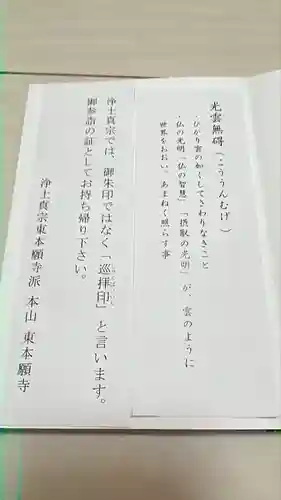 光雲無碍(こううんむげ)
・ひかり雲の如くしてさわりなきこと
・仏の光明「仏の智慧」「摂取の光明」が、雲のように
世界をおおい、あまねく照らす事
浄土真宗では、御朱印ではなく「巡拝印」と言います。
御参詣の証としてお持ち帰り下さい。
浄土真宗東本願寺派 本山 東本願寺